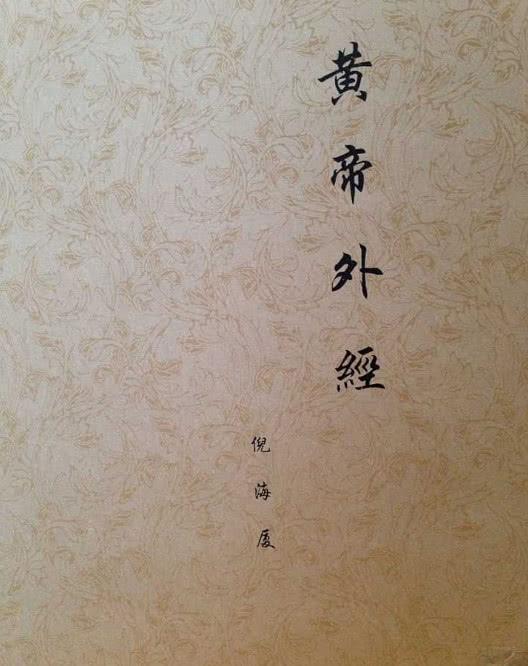 黃帝外經
倪海厦